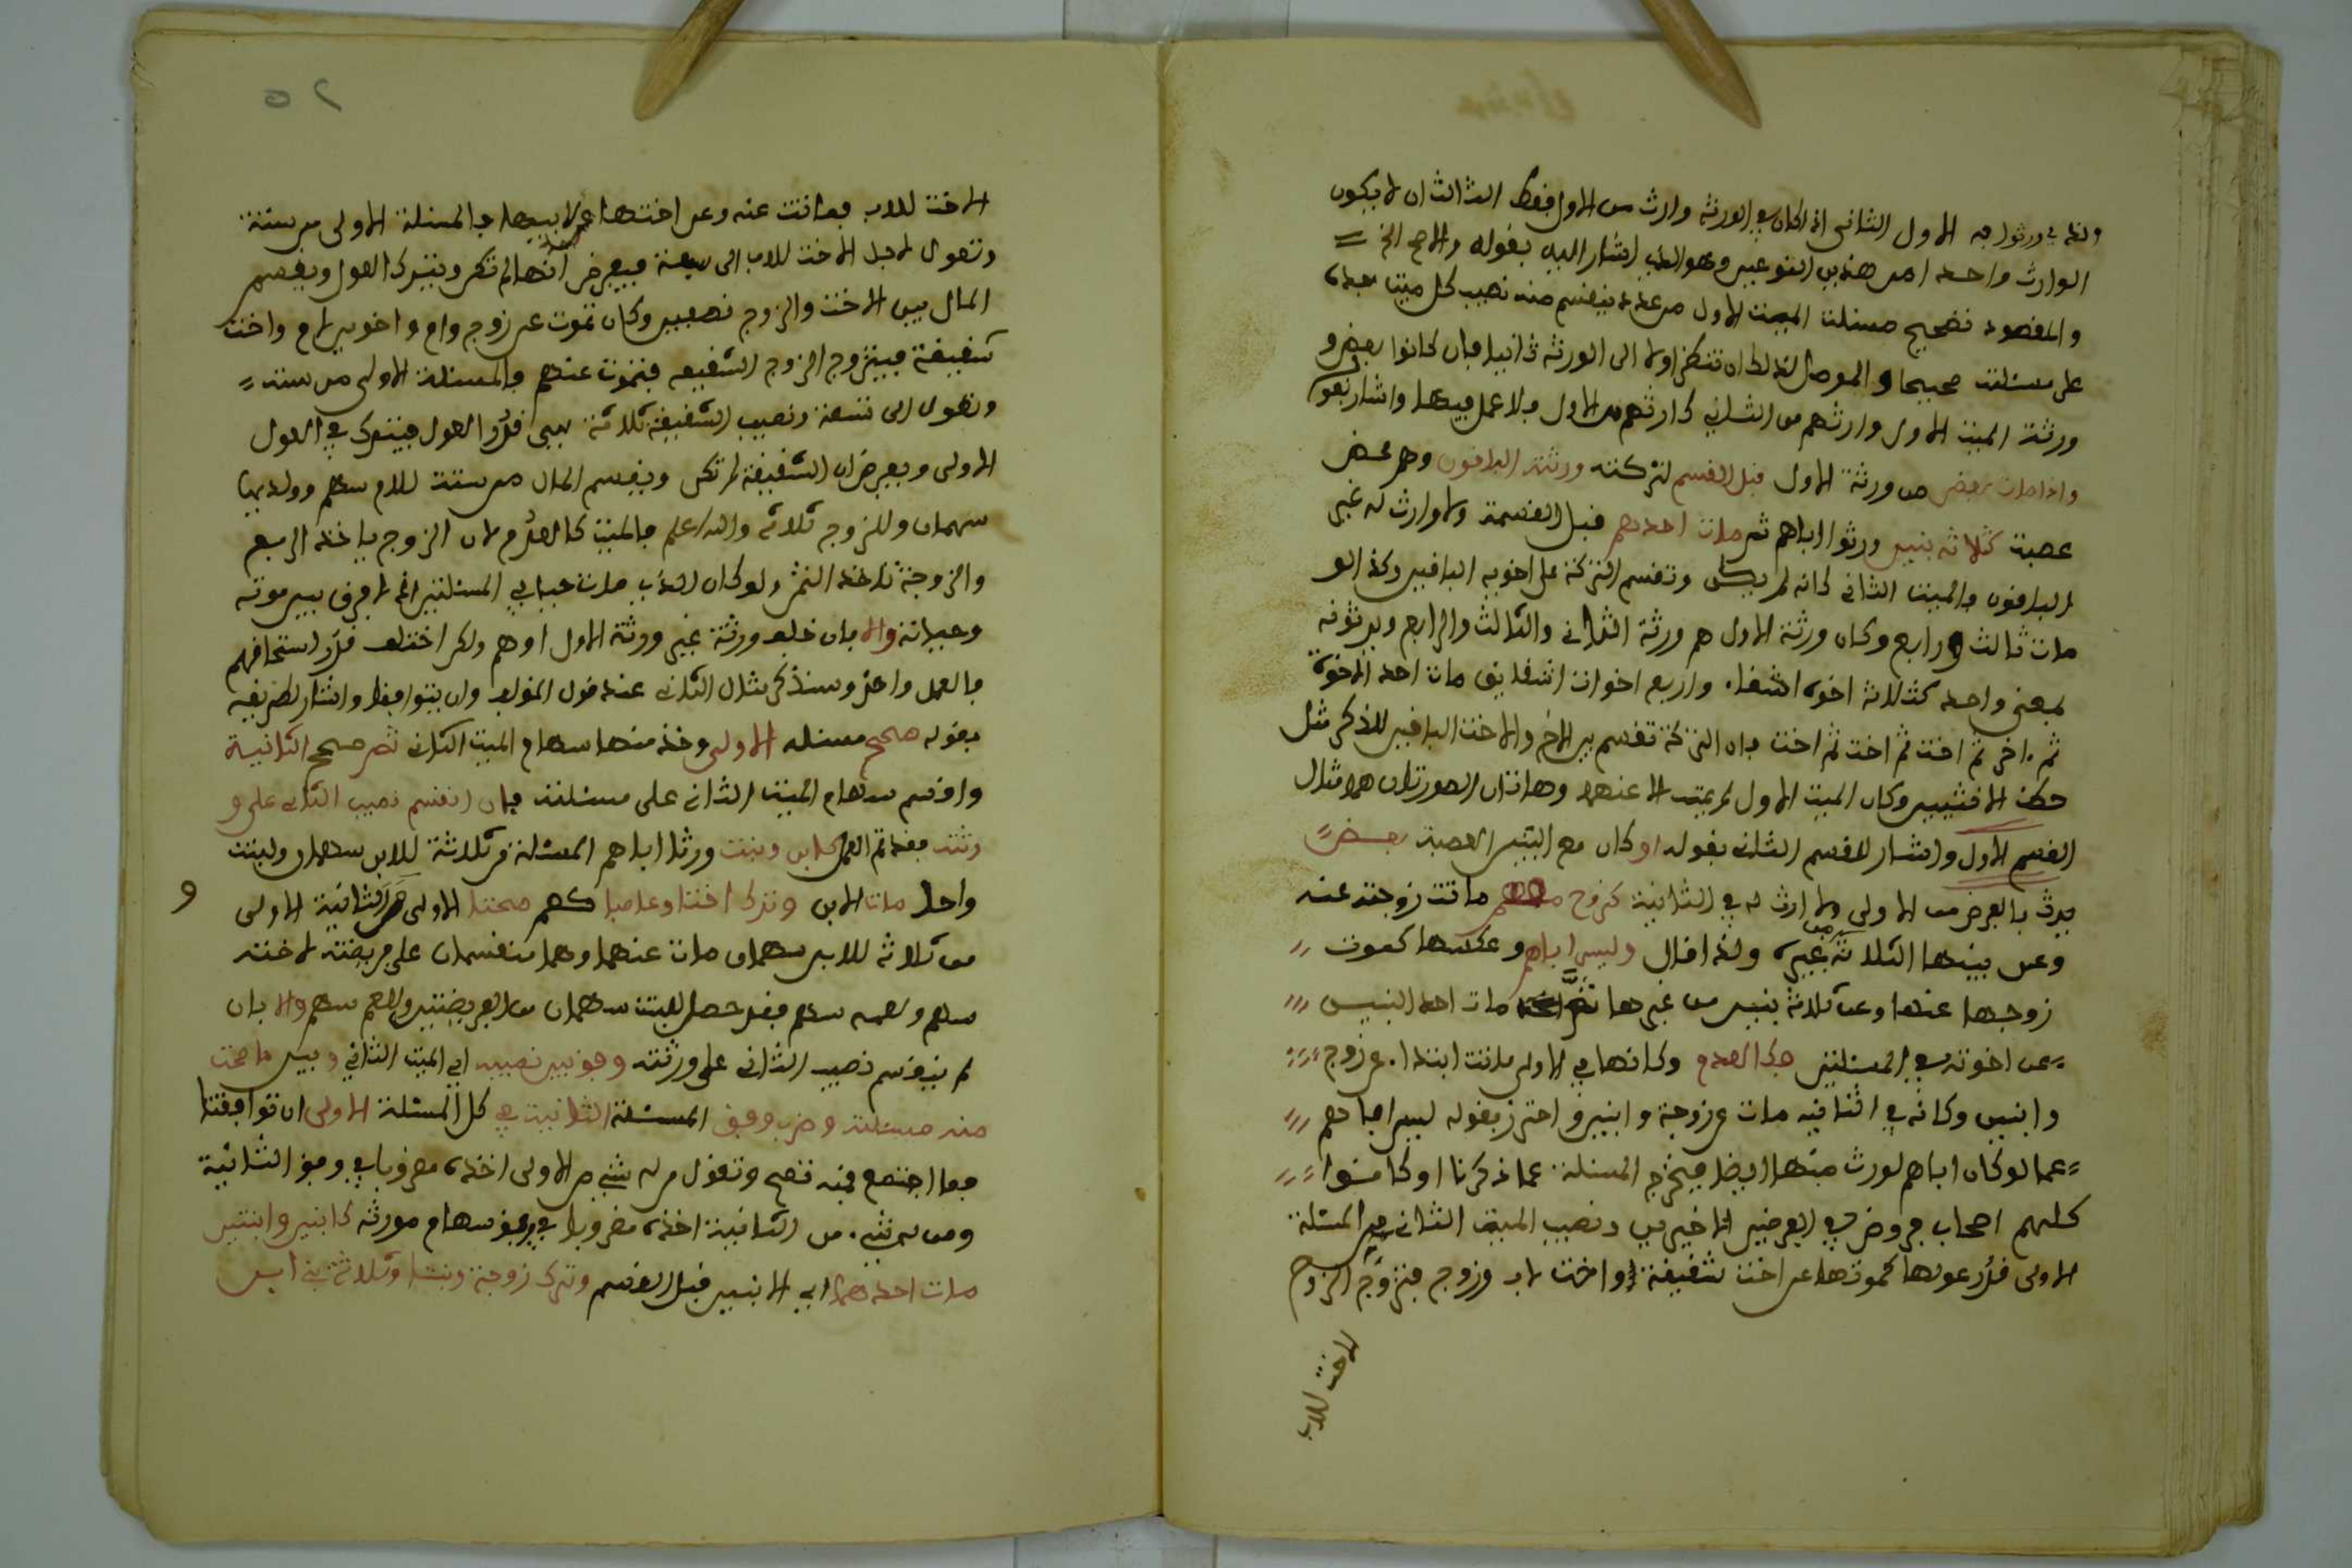 الوارث واحد امن هذين النوعين وهو الذي اشار اليه بقوله والاصح الخ
والمقصود تصحيح مسئلة الميت الاول من عدد ينقسم منه نصيب كل ميت بعده
على مسئلته صحيحا والموصل لذلك ان تنظر اولا الى الورثة ثانيا فان كانوا بعض و
ورثة الميت الاول وارثهم من الثاني كارثهم من الاول فلا عمل فيها واشار بقوله
واذا مات بعض من ورثة الاول قبل القسم لتركته ورثته الباقون وهم محض
عصبة كثلاثة بنين ورثوا اباهم ثم مات احدهم قبل القسمة ولا وارث له غير
الباقون فالميت الثاني كانه لم يكن وتقسم التركة على اخويه الباقيين وكذا لو
مات ثالث ورابع وكان ورثة الاول هم ورثة الثاني والثالث والرابع ويرثونه
بمعنى واحد كثلاثة اخوة اشقاء واربع اخوات اشقايق مات احد الاخوة
ثم اخر ثم اخت ثم اخت ثم اخت فان التركة تقسم بين الاخ والاخت الباقيين للذكر مثل
حظ الانثيين وكان الميت الاول لم يمت الا عنهما وهاتان الصورتان هما مثال
القسم الاول واشار للقسم الثاني بقوله او كان مع البنين العصبة بعض
يرث بالفرض من الاولى ولا ارث له في الثانية كزوج ماتت زوجته عنه
وعن بنيها الثلاثة من غيره ولذا قال وليس اباهم وعكسها كموت
زوجها عنها وعن ثلاثة بنين من غيرها ثم مات احد البنين
عن اخوته في المسئلتين كالعدم وكانها في الاولى ماتت ابتداء عن زوج
وابنين وكانه في الثانية مات عن زوجة وابنين واحترز بقوله ليس اباهم
عما لو كان اباهم لورث منها ايضا فيخرج المسئلة عما ذكرنا او كانوا
كلهم اصحاب فروض في الفرضين الاخيرين ونصيب الميت الثاني من المسئلة
الاولى قدر عولها كموتها عن اخت شقيقة واخت لاب وزوج فتزوج الزوج
الاخت للاب
٢٥
الاخت للاب فماتت عنه وعن اختها لابيها فالمسئلة الاولى من ستة
وتعول لاجل الاخت للاب الى سبعة فيفرض انها لم تكن ويترك العول ويقسم
المال بين الاخت والزوج نصفين وكان تموت عن زوج وام واخوين لام واخت
شقيقة فيتزوج الزوج الشقيقه فتموت عنهم فالمسئلة الاولى من ستة
وتعول الى تسعة ونصيب الشقيقة ثلاثة هي قدر العول فيترك في العول
الاولى ويفرض ان الشقيقة لم تكن ويقسم المال من ستة للام سهم وولديها
سهمان وللزوج ثلاثة والله اعلم فالميت كالعدم لان الزوج ياخذ الربع
والزوجة تاخذ الثمن ولو كان الذي مات حيا في المسئلتين اذ لا فرق بين موته
وحياته والا بان خلف ورثة غير ورثة الاول او هم ولكن اختلف قدر استحقاقهم
فالعمل واحد وسنذكر مثال الثاني عند قول المؤلف وان بنوا فقط واشار لطريقه
بقوله صحح مسئله الاولى وخذ منها سهام الميت الثاني ثم صحح الثانية
واقسم سهام الميت الثاني على مسئلته فان انقسم نصيب الثاني على و
رثته فقد تم العمل كابن وبنت ورثا اباهم المسئلة من ثلاثة للابن سهمان ولبنت
واحد مات الابن وترك اختا وعاصبا كعم صحتا الاولى والثانية الاولى
من ثلاثة للابن سهمان مات عنهما وهما منقسمان على فريضته لاخته
سهم ولعمه سهم فقد حصل للبنت سهمان من الفريضتين وللعم سهم والا بان
لم ينقسم نصيب الثاني على ورثته وفق بين نصيبه اي الميت الثاني وبين ما صحت
منه مسئلته وضرب وفق المسئلة الثانية في كل المسئلة الاولى ان توافقتا
فما اجتمع فمنه تصح وتقول من له شيء من الاولى اخذه مضروبا في وفق الثانية
ومن له شيء من الثانية اخذه مضروبا في وفق سهام مورثه كابنين وابنتين
مات احدهما اي الابنين قبل القسم وترك زوجة وبنتا وثلاثة بني ابن